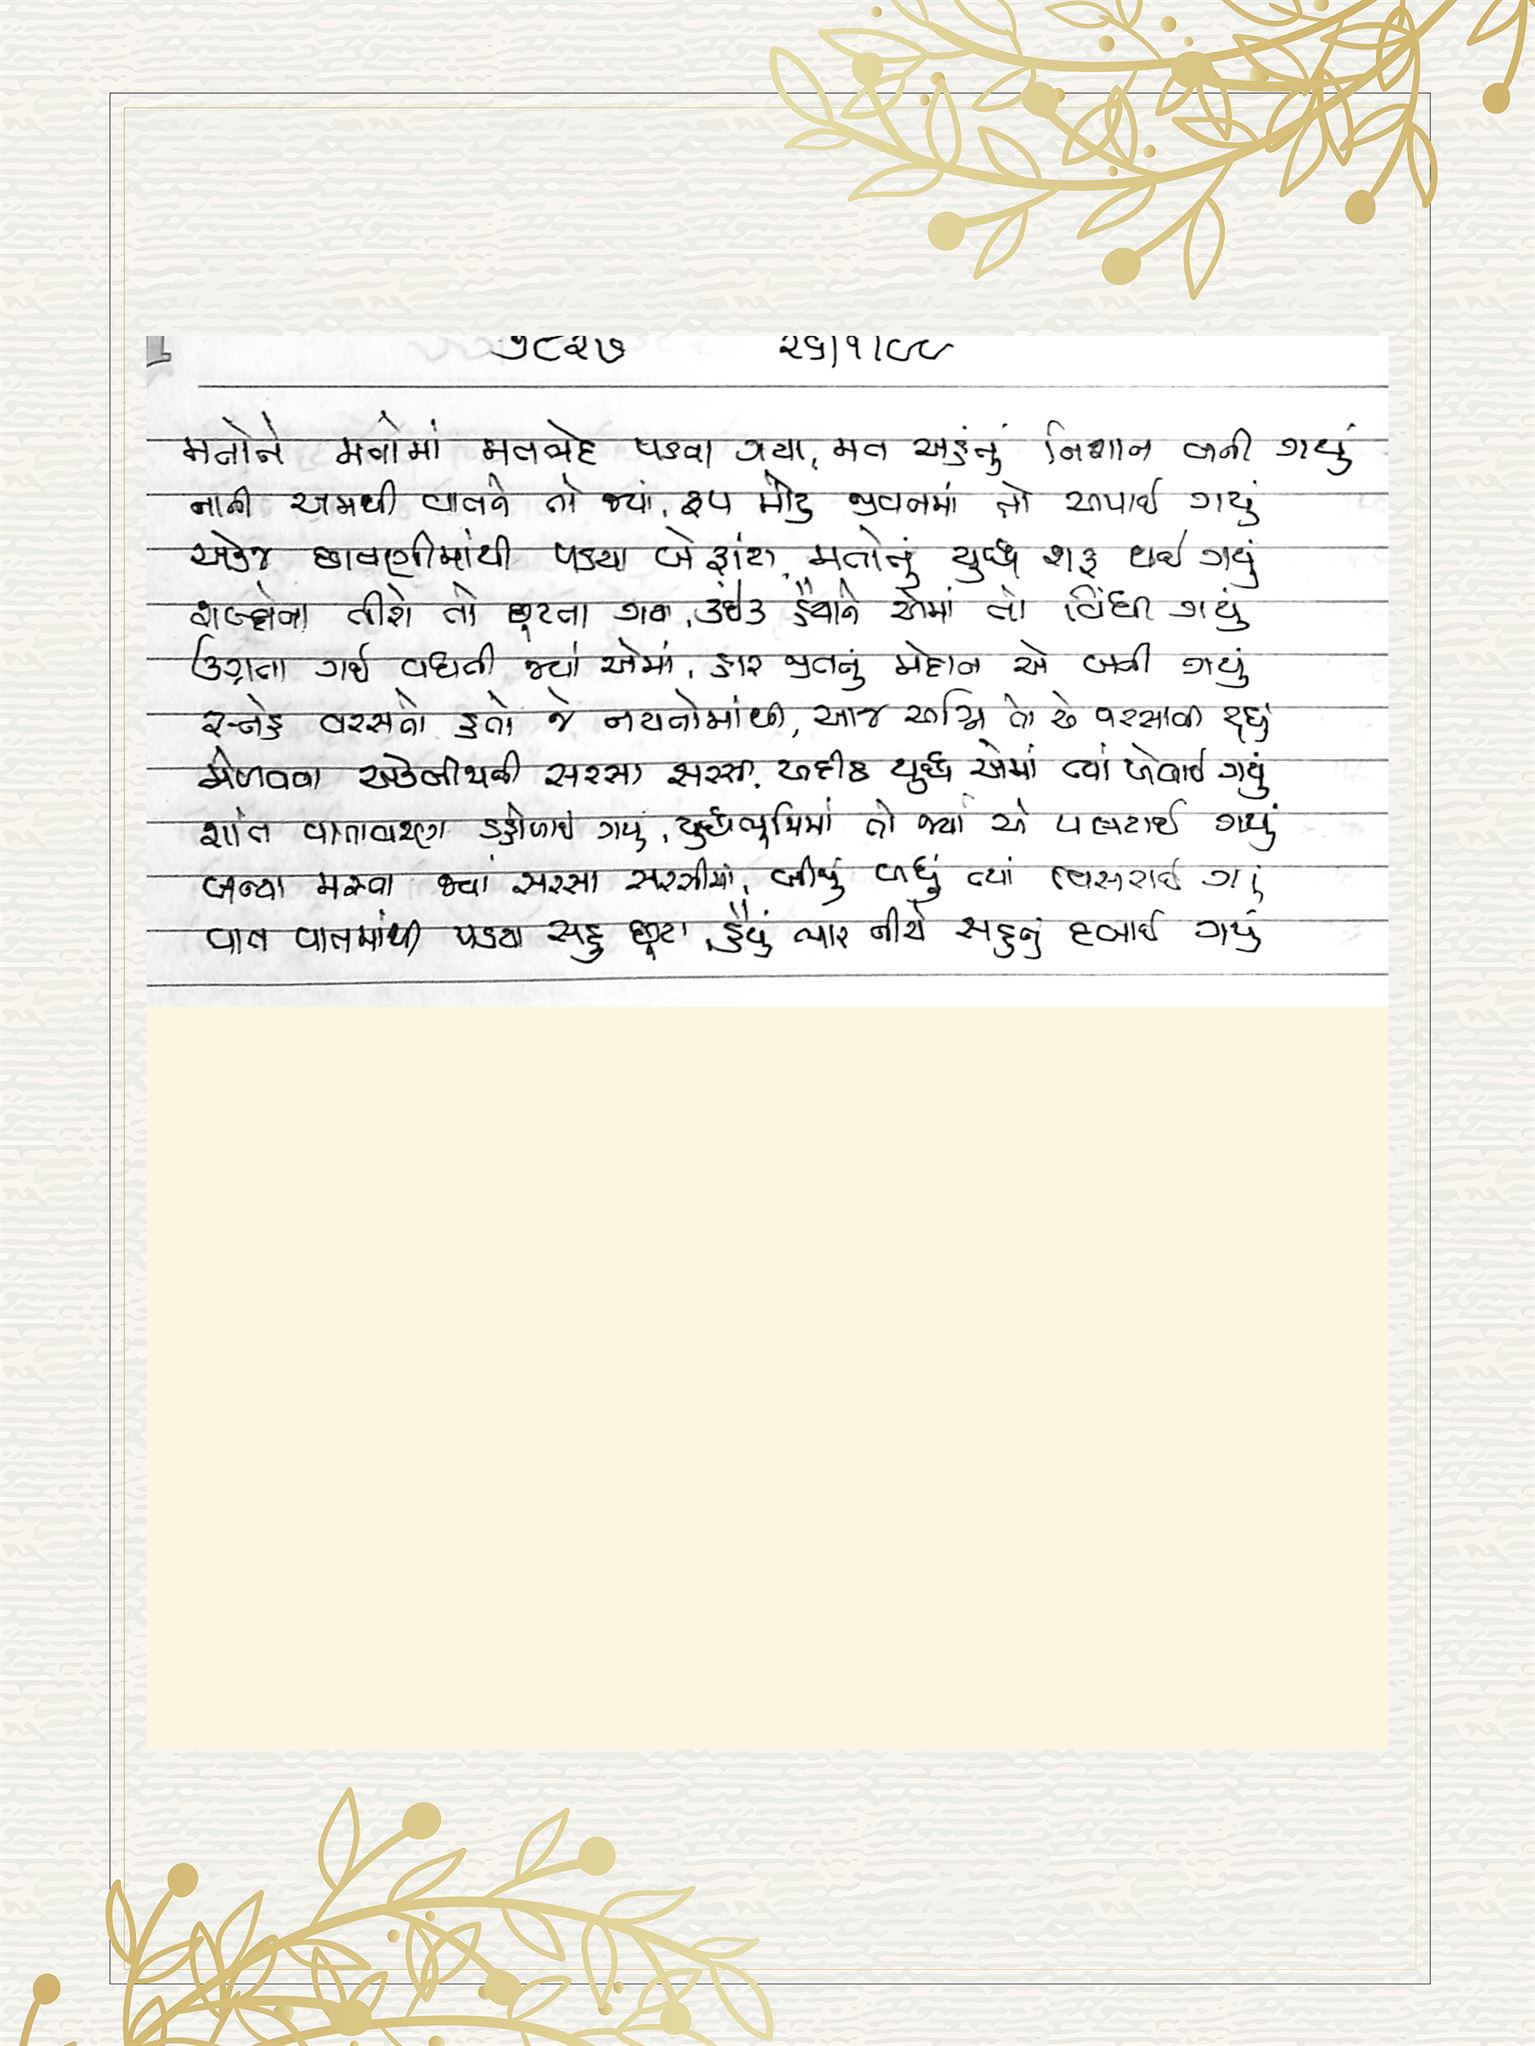 ૭૮૨૭ ૨૬/૧/૯૯
મનોને મનોમાં મતભેદ પડતા ગયા, મન અહંનું નિશાન બની ગયું
નાની અમથી વાતને તો જ્યાં, રૂપ મોટું જીવનમાં તો અપાઈ ગયું
એકજ છાવણીમાંથી પડયા બે ફાંટા, મતોનું યુદ્ધ શરૂ થઈ ગયું
શબ્દોના તીરો તો છૂટતા ગયા, કંઈક હૈયાને એમાં તો વિંધી ગયું
ઉગ્રતા ગઈ વધતી જ્યાં એમાં, હાર જીતનું મેદાન એ બની ગયું
સ્નેહ વરસતો હતો જે નયનોમાંથી, આજ અગ્નિ તો એ વરસાવી રહ્યું
મેળવવા એકબીજાની સરસા સરસી, અદીઠ યુદ્ધ એમાં ત્યાં ખેલાઈ ગયું
શાંત વાતાવરણ ડહોળાઈ ગયું, યુદ્ધભૂમિમાં તો જ્યાં એ પલટાઈ ગયું
બન્યા મસ્ત જ્યાં સરસા સરસીમાં, બીજું બધું ત્યાં વિસરાઈ ગયું
વાત વાતમાંથી પડયા સહુ છૂટા, હૈયું ભાર નીચે સહુનું દબાઈ ગયું